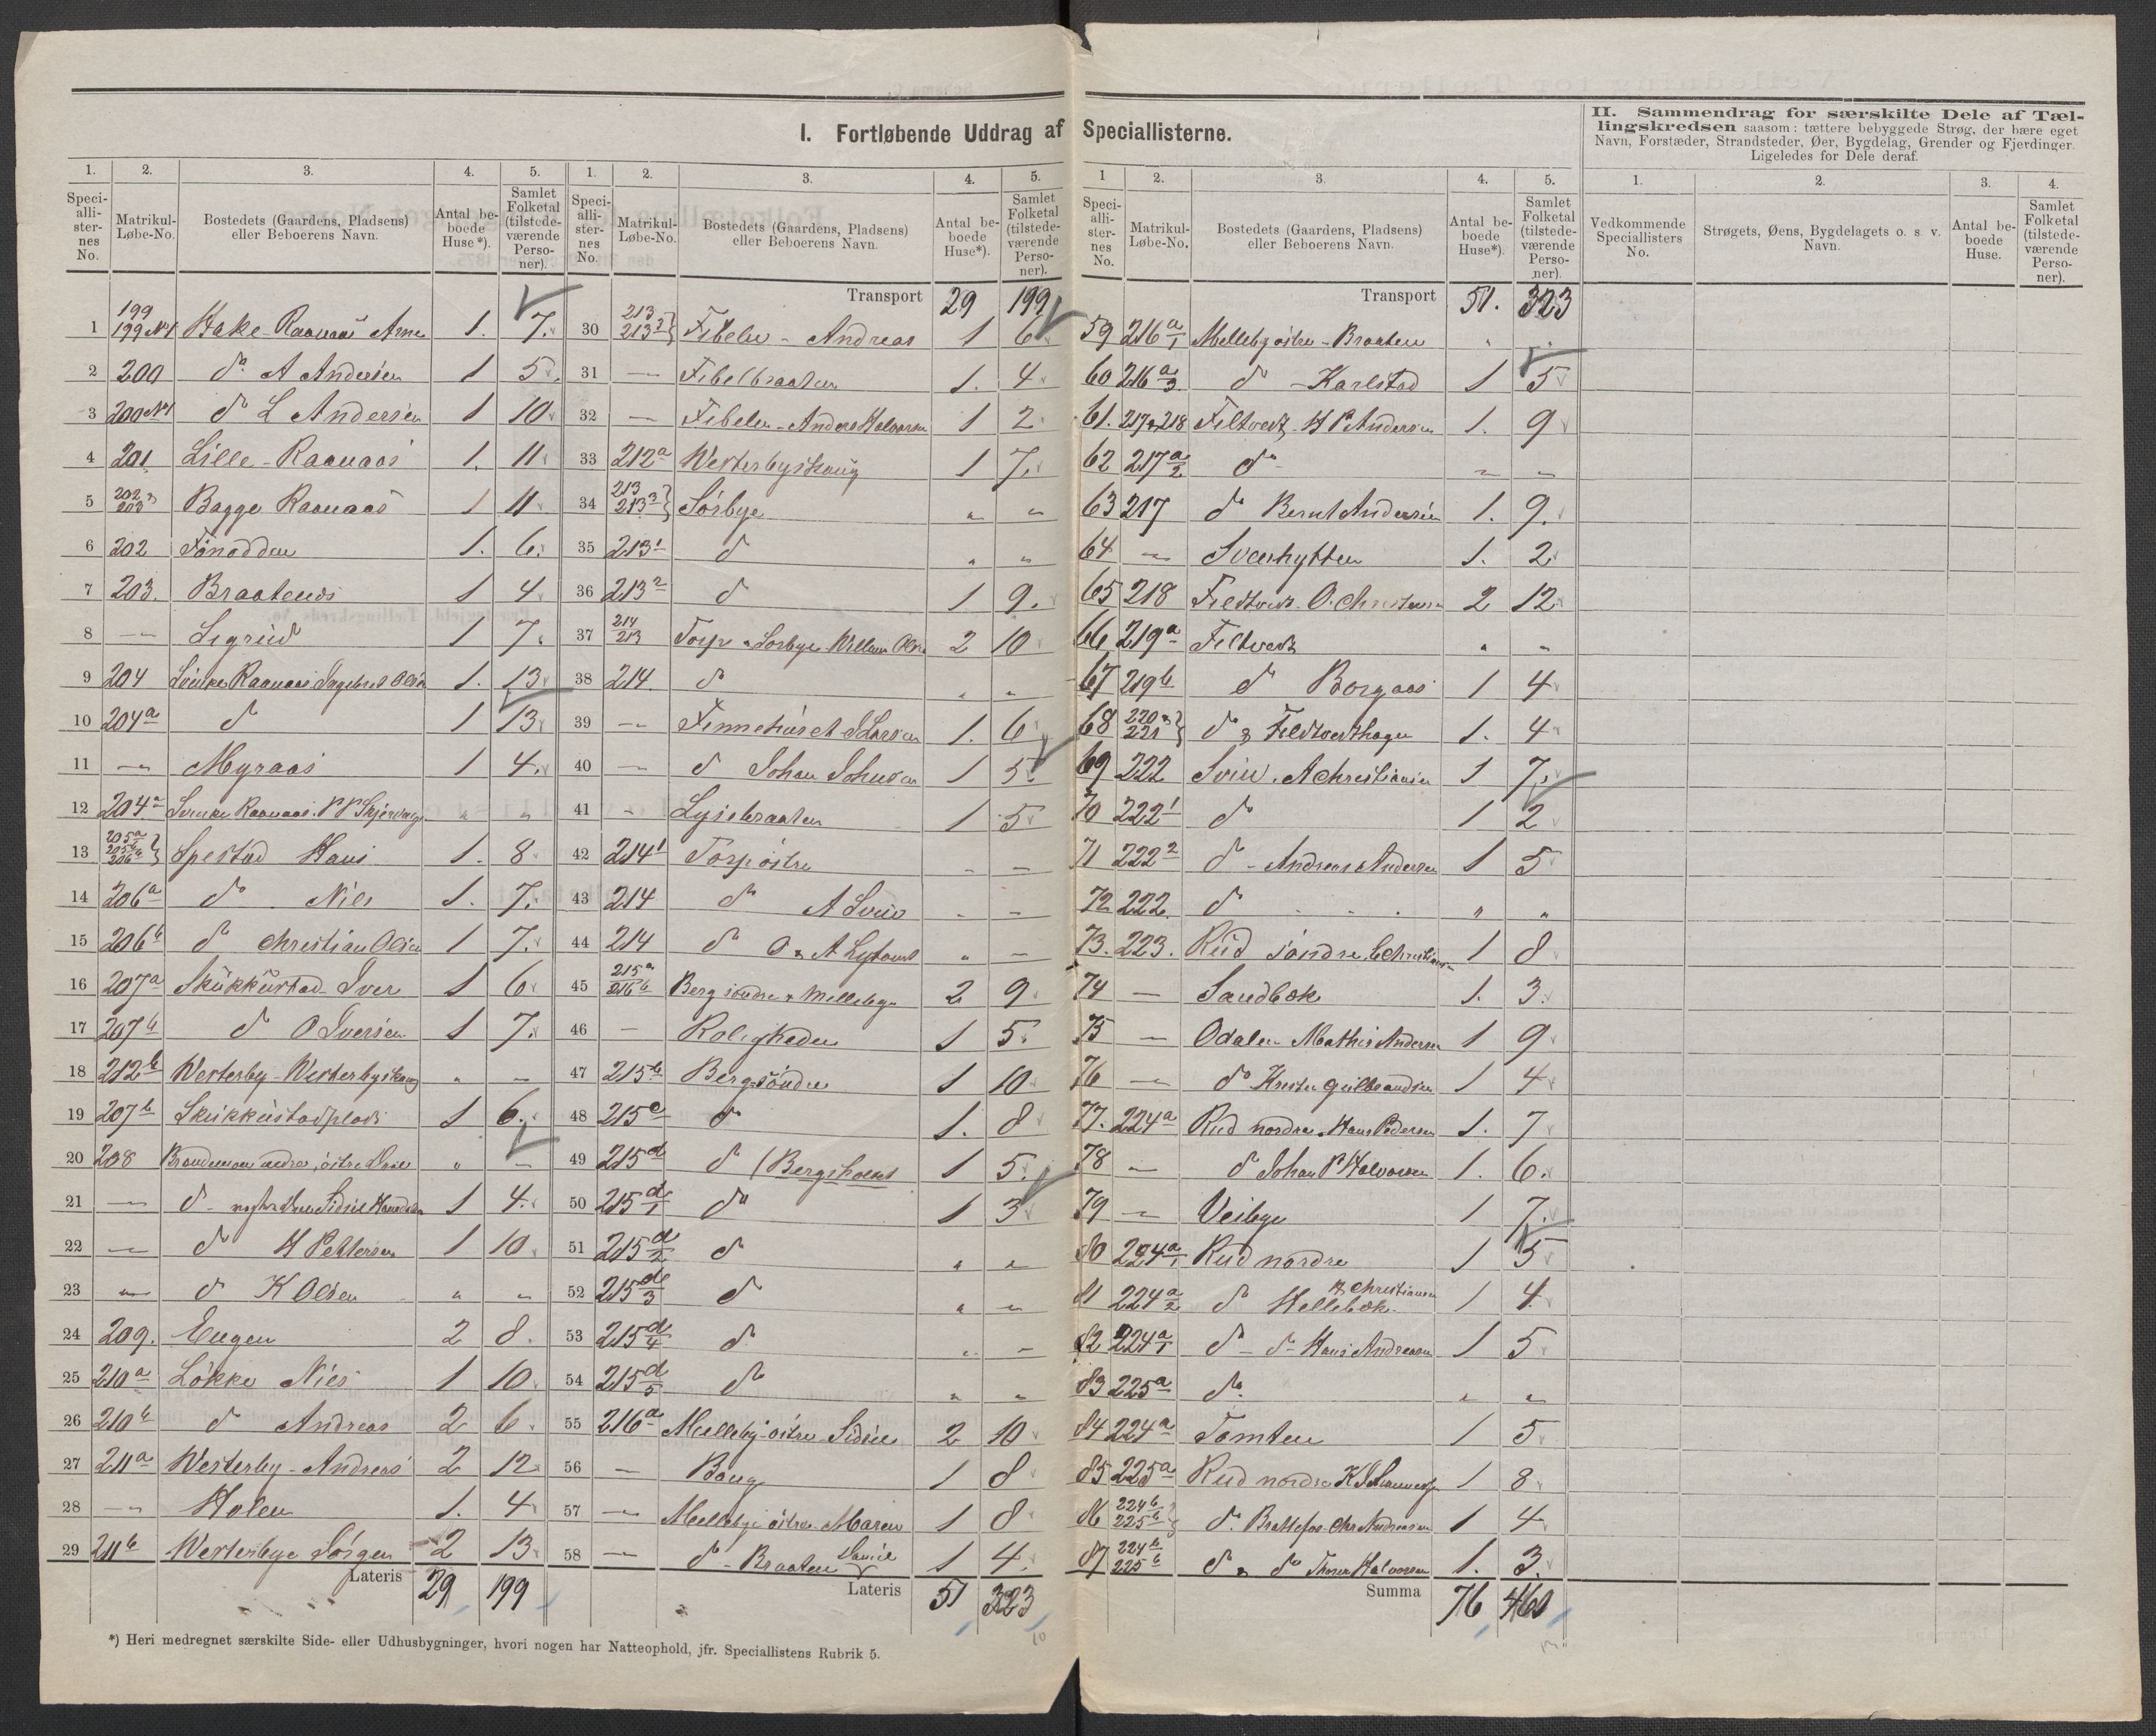 I. Fortløbende Uddrag af Speciallisterne.
II. Sammendrag for særskilte Dele af Tæl-
lingskredsen saasom: tættere bebyggede Strøg, der bære eget
Navn, Forstæder, Strandsteder, Øer, Bygdelag, Grender og Fjerdinger.
Ligeledes for Dele deraf.
1. 2. 3. 4. 5.
Speci-alli-ster-nes No. Matrikul-Løbe-No. Bostedets (Gaardens, Pladsens) eller Beboerens Navn. Antal be-boede Huse*). Samlet Folketal (tilstede-værende Perso-ner).
1 199 199 No 1 Hake-Raanaas Arne 1. 7.
2 200 do A Andersen 1 5
3 200 No 1 do L Andersen 1 10
4 201 Lille-Raanaas 1. 11
5 202 & 203 Bagge Raanaas 1 11
6 202 Tónodden 1. 6.
7 203. Braatenes 1 4
8 — Sigrud 1 7.
9 204 Svinke Raanaas Ingebret Olsen 1. 13
10 204a do 1 13
11 — Myraas 1 4.
12 204a Svinke Raanaas. P P Skjørvang " "
13 205a 205b 206a Spestad Hans 1. 8
14 206a do Nils 1. 7.
15 206b do Christian Olsen 1 7.
16 207a Skukkustad Iver 1 6
17 207b do O Iversen 1 7.
18 212b Westerby-Westerbyskoug " —
19 207b Skukkustadplads 1 6.
20 208 nedre, østre " —
21 — do Sidsel 1 4.
22 — do H Pettersen 1 10
23 — do K Olsen " "
24 209. Engen 2 8.
25 210a Løkke Nils 1 10
26 210b do Andreas 2 6
27 211a Westerby-Andreas 2 12
28 — Holen 1. 4
29 211b Westerbye Jørgen 2 13
Lateris 29 199
1. 2. 3. 4. 5.
Speci-alli-ster-nes No. Matrikul-Løbe-No. Bostedets (Gaardens, Pladsens) eller Beboerens Navn. Antal be-boede Huse*). Samlet Folketal (tilstede-værende Perso-ner).
Transport 29 199
30 213 213 2 Fibelen - Andreas 1 6
31 — Fibelbraaten 1. 4
32 — Fibelen-Anders Halvorsen 1 2
33 212a Westerbyskoug 1 7.
34 213 213 3 Sørbye " "
35 213 1 do " "
36 213 2 do 1 9.
37 214 213 Torp & Sørbye Willum Olsen 2 10
38 214. do " "
39 — Finnehuset S Larsen 1. 6
40 — do Johan Johnsen 1 5.
41 - Lysebraaten 1 5
42 214 1 Torp østre - —
43 214 do A Sviu - —
44 214 do O & A " —
45 215a 216b Berg søndre & Mellebye 2 9
46 — Roligheden 1 5.
47 215b Berg søndre 1 10
48 215c do 1. 8
49 215d do (Bergsholm 1 5.
50 215 d/1 do 1 3
51 215 d/2 do " "
52 215 d/3 do " "
53 215 d/4 do " —
54 215 d/5 do " "
55 216a Melleby østre Sidsel 2 10
56 — Baug 1 8
57 — Mellebye østre Maren 1 8
58 — do - Braaten Daniel 1 4.
Lateris 51 323
1 2. 3. 4. 5.
Speci-alli-ster-nes No. Matrikul-Løbe-No. Bostedets (Gaardens, Pladsens) eller Beboerens Navn. Antal be-boede Huse*). Samlet Folketal (tilstede-værende Perso-ner).
Transport 51. 323
59 216 a/1 Melleby østre - Braaten " "
60 216 a/3 do - Karlstad 1 5
61. 217 & 218 Filtvedt H P Andersen 1. 9
62 217 a/2 do " "
63 217 do Bernt Andersen 1. 9.
64 — Sverhytten 1. 2
65 218 Filtvedt O. Christensen 2 12
66 219a Filtvedt " "
67 219b do Borgaas 1 4
68 220 & 221 do & Filtvedthagen 1. 4
69 222 Sviu. A Christiansen 1 7.
70 222 1 do 1 2
71 222 2 do - Andreas Andersen 1 5
72 222. do " "
73. 223. Rud søndre. C Christiansen 1 8
74 — Sandbæk 1. 3.
75 — Odalen Mathis Andersen 1 9
76 — do Gulbrandsen 1 4
77. 224a Rud nordre Hans Pedersen 1. 7
78 — do Johan P Halvorsen 1. 6.
79 — Veibye 1 7.
80 224 a/1 Rud nordre 1 5
81 224 a/2 do Hellebæk Christiansen 1 4.
82 224 a/1 do - do Hans Andreasen 1 5
83 225a do. " "
84 224a Tomten 1 5
85 225a Rud nordre 1 8
86 224b 225b do. Brattefos Chr Andreasen 1 4
87 224b 225b do & do Thorer Halvorsen 1. 3.
Summa 76 460
1. 2. 3. 4.
Vedkommende Speciallisters No. Strøgets, Øens, Bygdelagets o. s. v. Navn. Antal be-boede Huse. Samlet Folketal (tilstede-værende Perso-ner).
*) Heri medregnet særskilte Side- eller Udhusbygninger, hvori nogen har Natteophold, jfr. Speciallistens Rubrik 5.